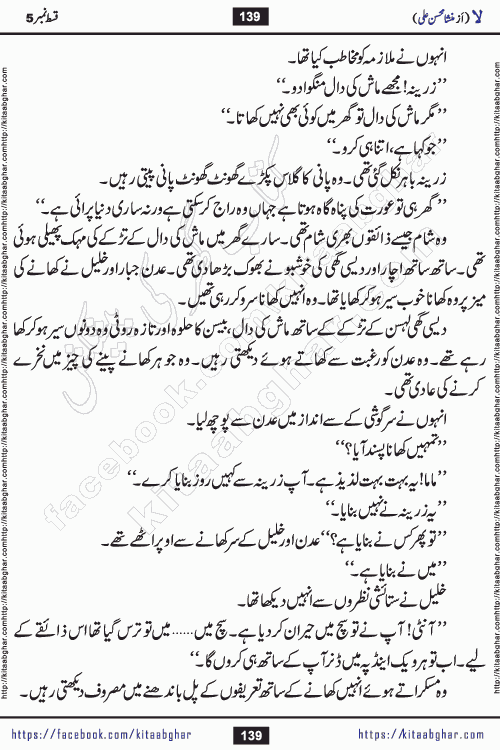 لا (از منشا محسن علی)
139
قسط نمبر 5
انہوں نے ملازمہ کو مخاطب کیا تھا۔
’’زرینہ! مجھے ماش کی دال منگوا دو۔‘‘
’’مگر ماش کی دال تو گھر میں کوئی بھی نہیں کھاتا۔‘‘
’’جو کہا ہے، اتنا ہی کرو۔‘‘
زرینہ باہر نکل گئی تھی۔ وہ پانی کا گلاس پکڑے گھونٹ گھونٹ پانی پیتی رہیں۔
’’گھر ہی تو عورت کی پناہ گاہ ہوتا ہے جہاں وہ راج کر سکتی ہے ورنہ ساری دنیا پرائی ہے۔‘‘
وہ شام جیسے ذائقوں بھری شام تھی۔ سارے گھر میں ماش کی دال کے تڑکے کی مہک پھیلی ہوئی
تھی۔ ساتھ ساتھ اچار اور دیسی گھی کی خوشبو نے بھوک بڑھا دی تھی۔ عدن جبار اور خلیل نے کھانے کی
میز پر وہ کھانا خوب سیر ہو کر کھایا تھا۔ وہ انہیں کھانا سرو کر رہی تھیں۔
دیسی گھی لہسن کے تڑکے کے ساتھ ماش کی دال، بیسن کا حلوہ اور تازہ روٹی وہ دونوں سیر ہو کر کھا
رہے تھے۔ وہ عدن کو رغبت سے کھاتے ہوئے دیکھتی رہیں۔ وہ جو ہر کھانے پینے کی چیز میں نخرے
کرنے کی عادی تھی۔
انہوں نے سرگوشی کے سے انداز میں عدن سے پوچھ لیا۔
’’تمہیں کھانا پسند آیا؟‘‘
’’ماما! یہ بہت بہت لذیذ ہے۔ آپ زرینہ سے کہیں روز بنایا کرے۔‘‘
’’یہ زرینہ نے نہیں بنایا۔‘‘
’’تو پھر کس نے بنایا ہے؟‘‘ عدن اور خلیل کے سر کھانے سے اوپر اٹھے تھے۔
’’میں نے بنایا ہے۔‘‘
خلیل نے ستائشی نظروں سے انہیں دیکھا تھا۔
’’آنٹی! آپ نے تو سچ میں حیران کر دیا ہے۔ سچ میں...... میں تو ترس گیا تھا اس ذائقے کے
لیے۔ اب تو ہر ویک اینڈ پہ میں ڈنر آپ کے ساتھ ہی کروں گا۔‘‘
وہ مسکراتے ہوئے انہیں کھانے کے ساتھ تعریفوں کے پل باندھنے میں مصروف دیکھتی رہیں۔
https://facebook.com/kitaabghar
139
https://kitaabghar.com